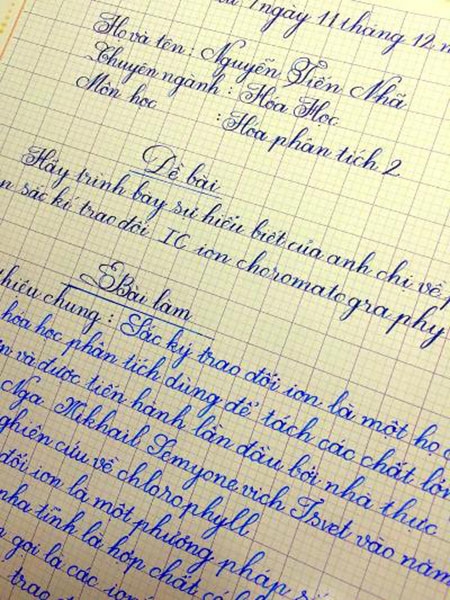 ngày 11 tháng 12 n
Họ và tên : Nguyễn Tiến Nhã
Chuyên ngành : Hóa Học
Môn học : Hóa phân tích 2
Đề bài
Hãy trình bày sự hiểu biết của anh chị về p
n sắc kí trao đổi IC ion choromatography
Bài làm
hiệu chung : Sắc ký trao đổi ion là một họ c
hóa học phân tích dùng để tách các chất lỏn
và được tiến hành lần đầu bởi nhà thực
Nga Mikhail Semyonevich Tsvet vào năm
ghiên cứu về chlorophyll
đổi ion là một phương pháp sắ
pha tĩnh là hợp chất có
gọi là các ion
trao đổ